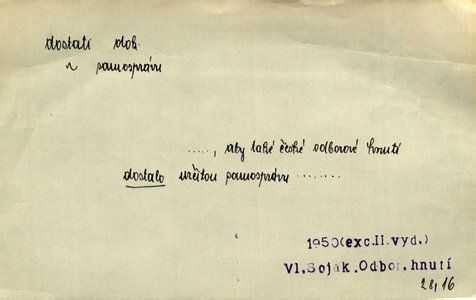 dostati dok.
v samosprávu
....., aby také české odborové hnutí
dostalo určitou samosprávu ........
1950(exc.II.vyd.)
Vl.Soják.Odbor.hnutí
28,16